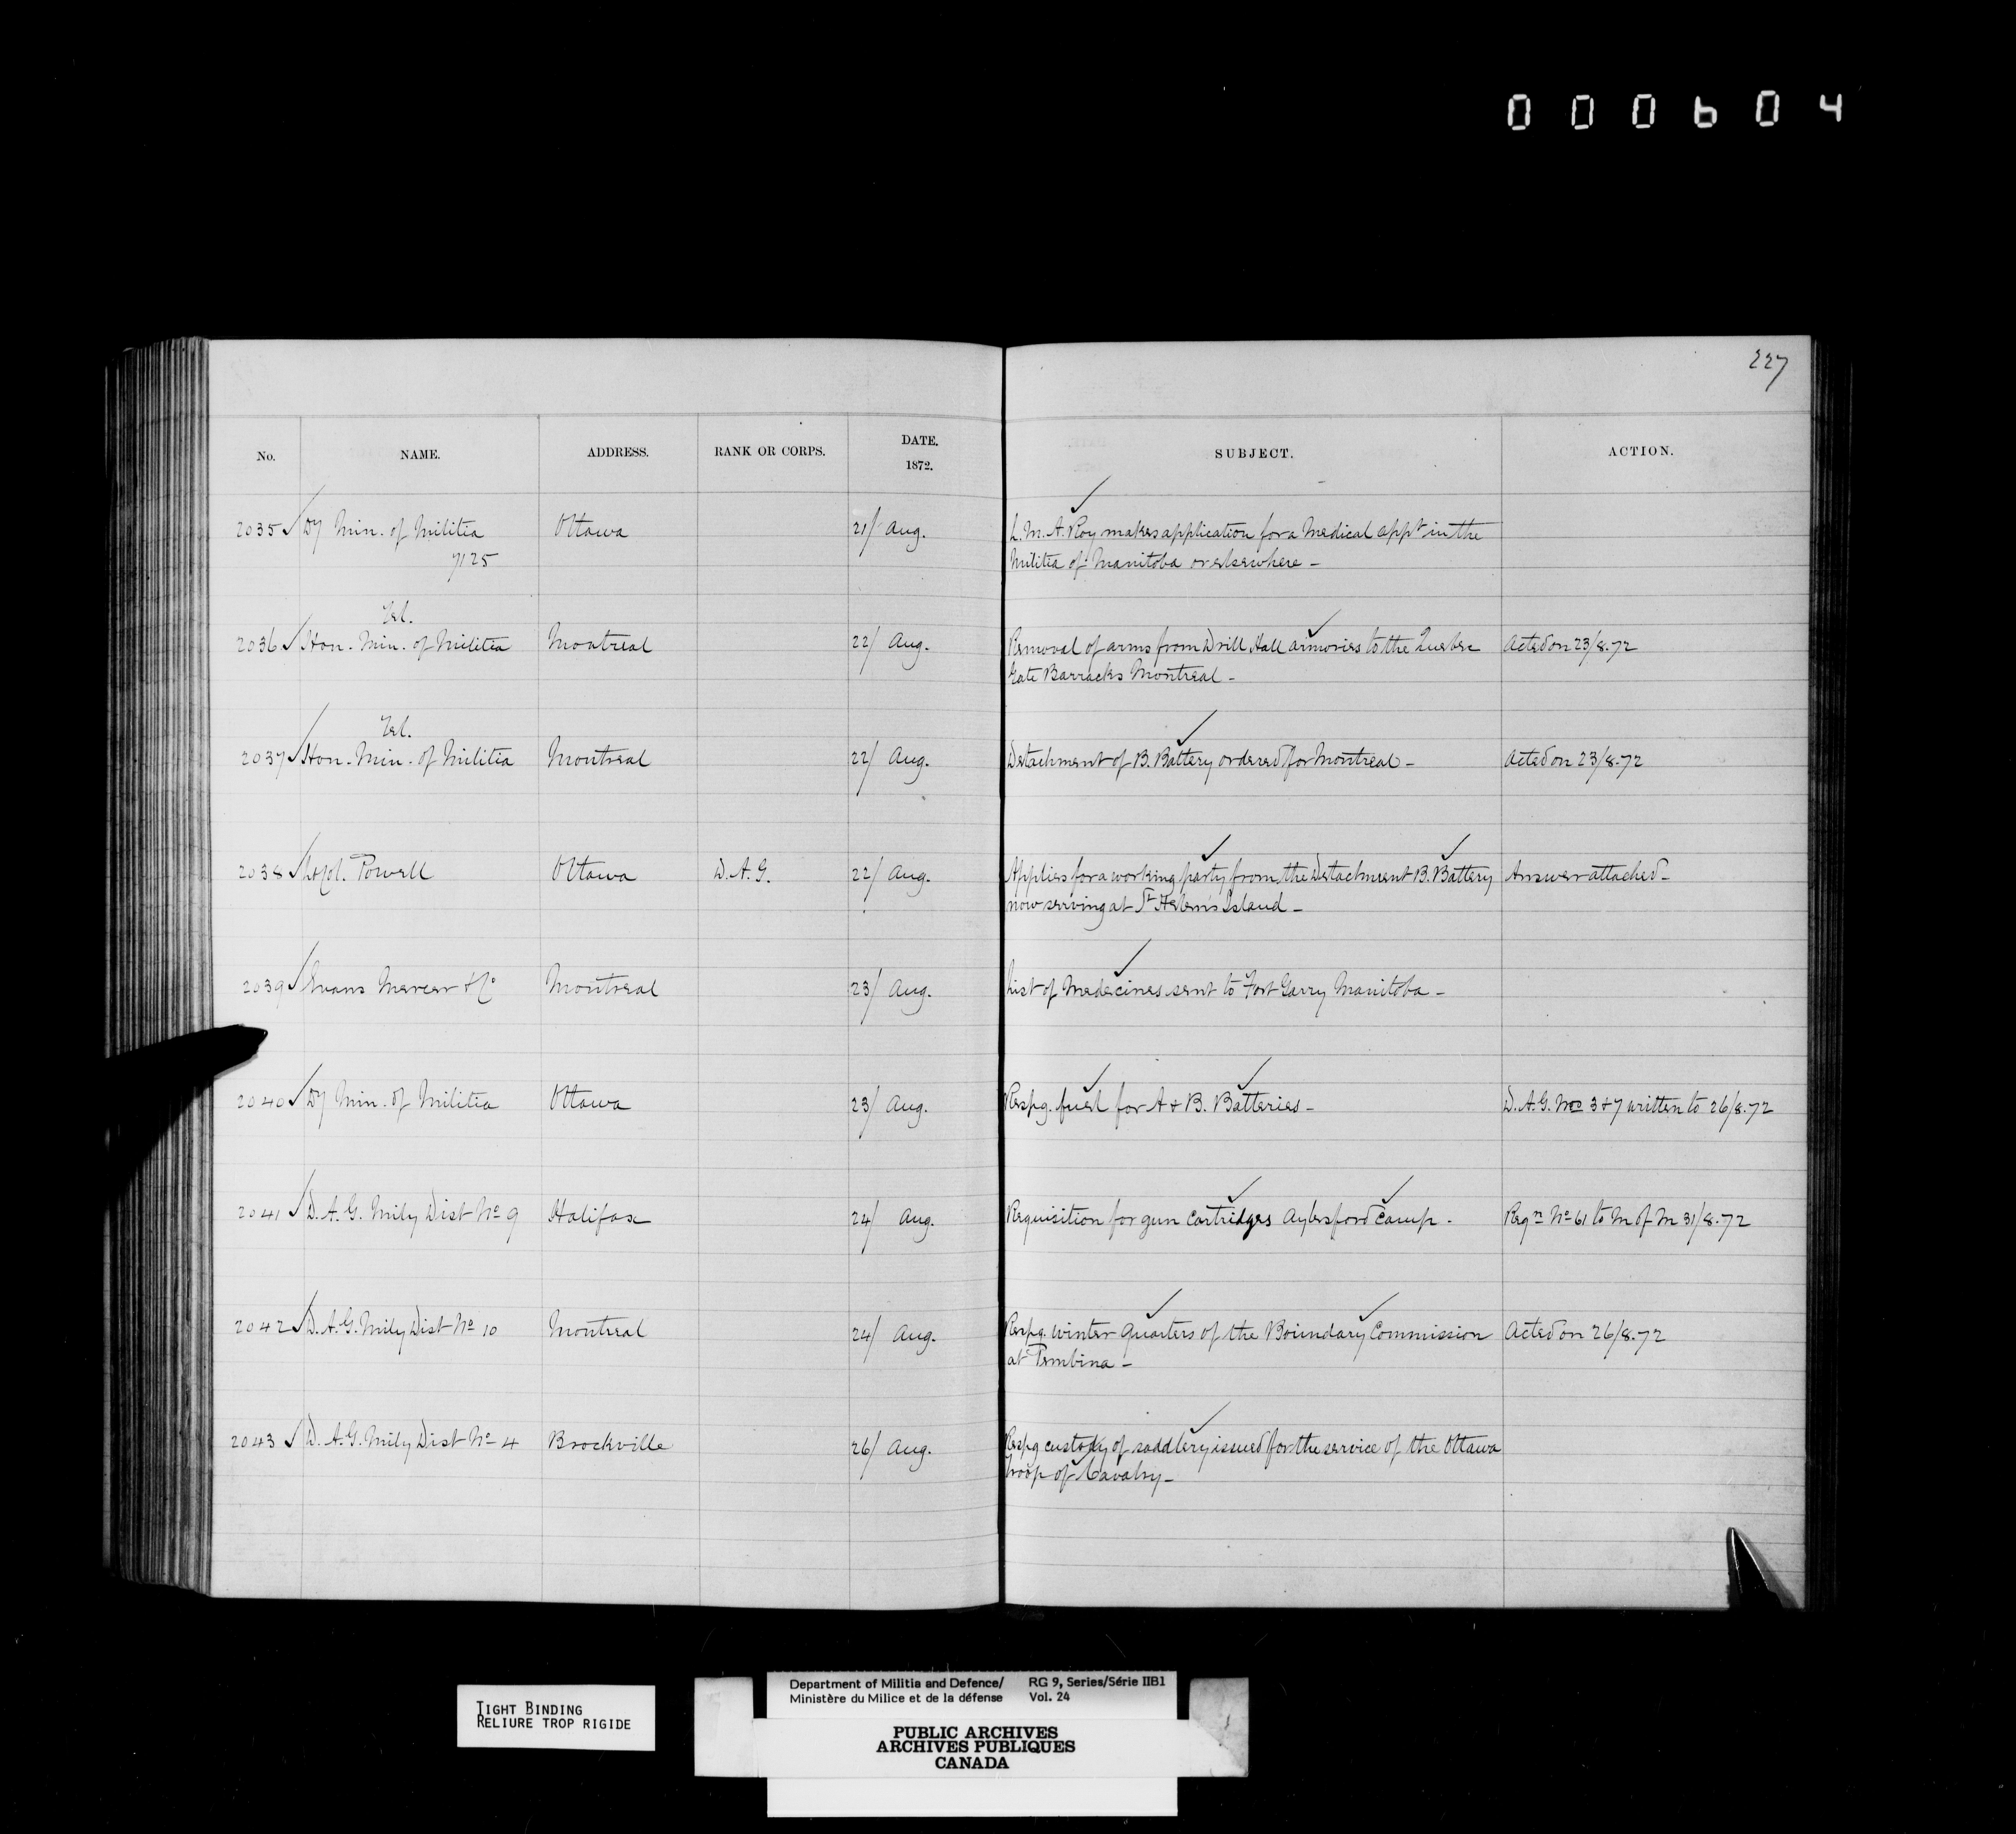 000604
227
No. NAME. ADDRESS. RANK OR CORPS. DATE. 1872. SUBJECT. ACTION.
2035 Dy Min. of Militia Ottawa 21/ Aug. L. M. A. Roy makes application for a Medical appt in the
7125 Militia of Manitoba or elsewhere -
Tel.
2036 Hon. Min. of Militia Montreal 22/ Aug. Removal of arms from Drill Hall armories to the Quebec Acted on 23/8.72
Gate Barracks Montreal -
Tel.
2037 Hon. Min. of Militia Montreal 22/ Aug. Detachment of B. Battery ordered for Montreal - Acted on 23/8.72
2038 Lt Col. Powell Ottawa D.A.G. 22/ Aug. Applies for a working party from the Detachment B. Battery Answer attached -
now serving at St Helen's Island -
2039 Evans Mercer & Co Montreal 23/ Aug. List of Medecines sent to Fort Garry Manitoba -
2040 Dy Min. of Militia Ottawa 23/ Aug. Respg. fuel for A & B. Batteries - D.A.G. Nos 3 & 7 written to 26/8.72
2041 D.A.G. Mily Dist No 9 Halifax 24/ Aug. Requisition for gun Cartridges Aylesford Camp. Reqn No 61 to M of M 31/8.72
2042 D.A.G. Mily Dist No 10 Montreal 24/ Aug. Respg. winter quarters of the Boundary Commission Acted on 26/8.72
at Pembina -
2043 D.A.G. Mily Dist No 4 Brockville 26/ Aug. Respg custody of saddlery issued for the service of the Ottawa
Troop of Cavalry -
TIGHT BINDING
RELIURE TROP RIGIDE
Department of Militia and Defence/ RG 9, Series/Série IIB1
Ministère du Milice et de la défense Vol. 24
PUBLIC ARCHIVES
ARCHIVES PUBLIQUES
CANADA